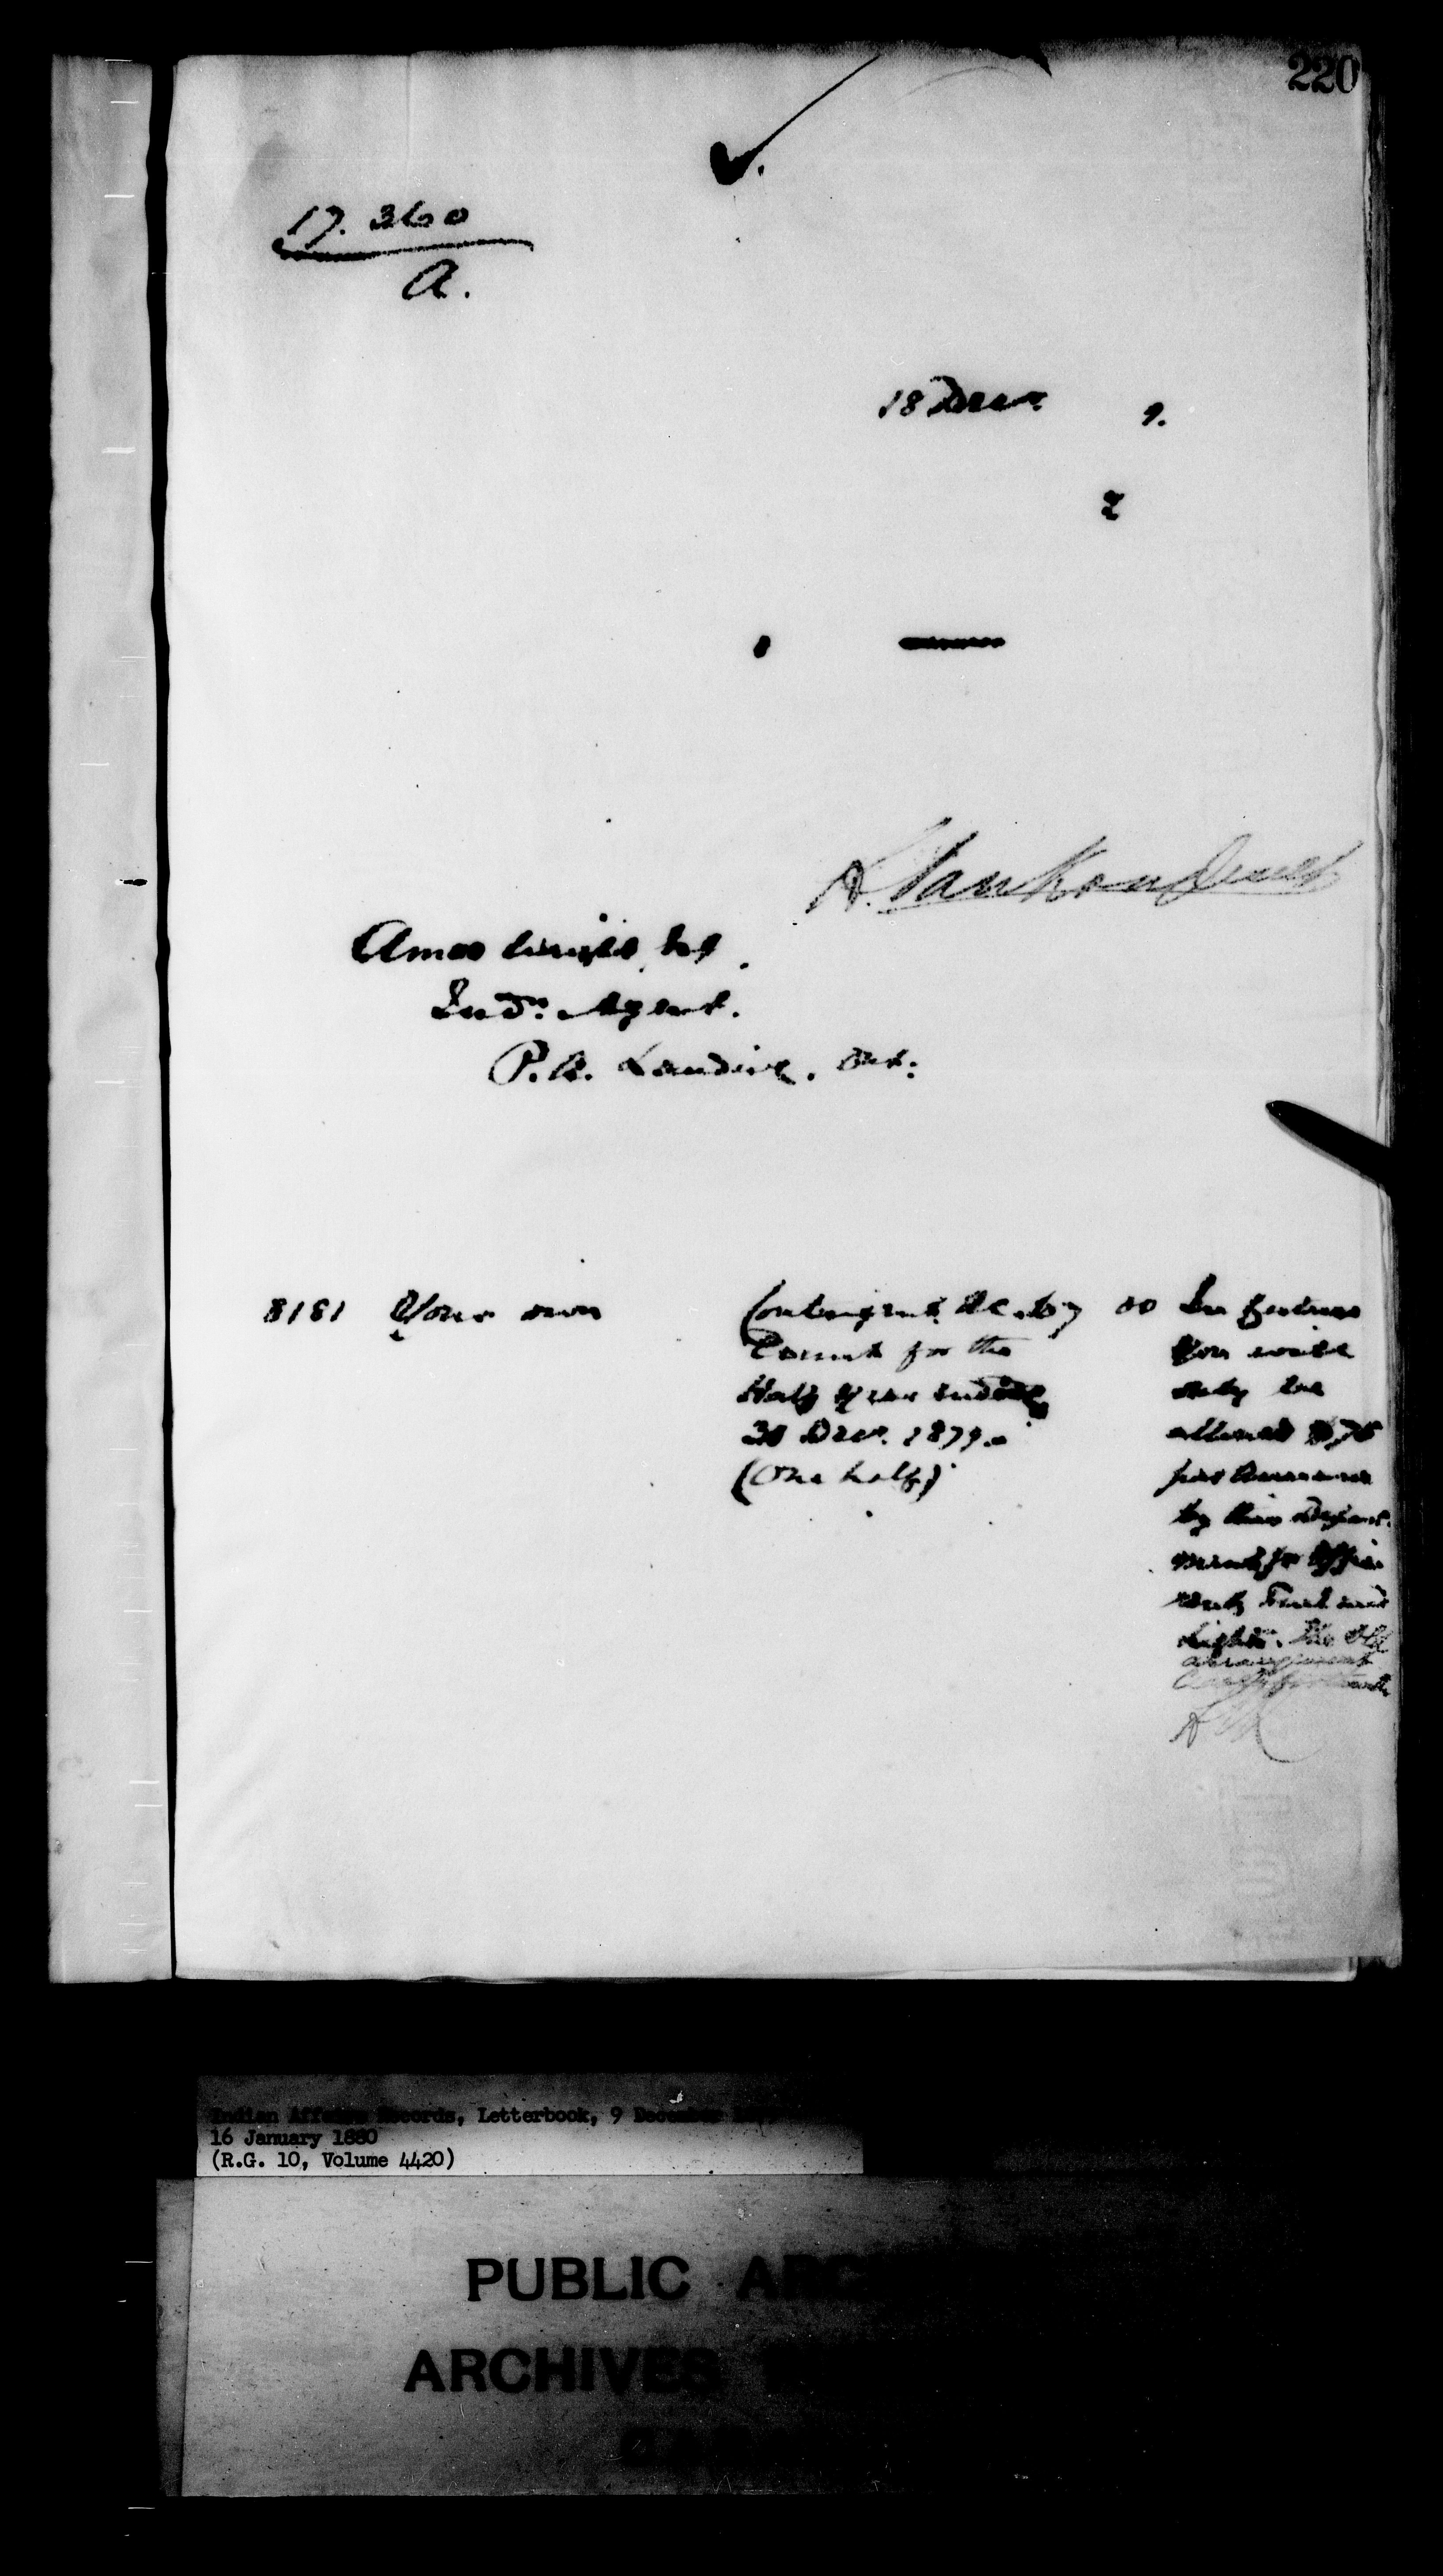 220
17. 360
A.
18 Decr. 9.
2
L. Vankoughnet
Amos Wright, Esq.
Indn. Agent.
P.A. Landing, Ont:
8181 Your own Contingent Ac to 00 In future
for the you will
Half Year ended only be
30 Decr. 1879. allowed $75
(One half) per Annum
by this Depart-
ment for Office
rent, Fuel and
Lights. The old
arrangement
Indian Affairs Records, Letterbook, 9 December
16 January 1880
(R.G. 10, Volume 4420)
PUBLIC ARC
ARCHIVES